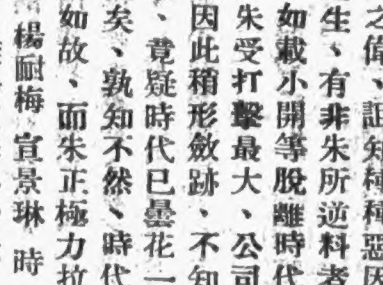 之偉、詎知種種惡因
生、有非朱所逆料者
如載小開等脫離時代
朱受打擊最大、公司
因此稍形斂跡、不知
、竟疑時代已曇花一
矣、孰知不然、時代
如故、而朱正極力拉
楊耐梅、宣景琳、時